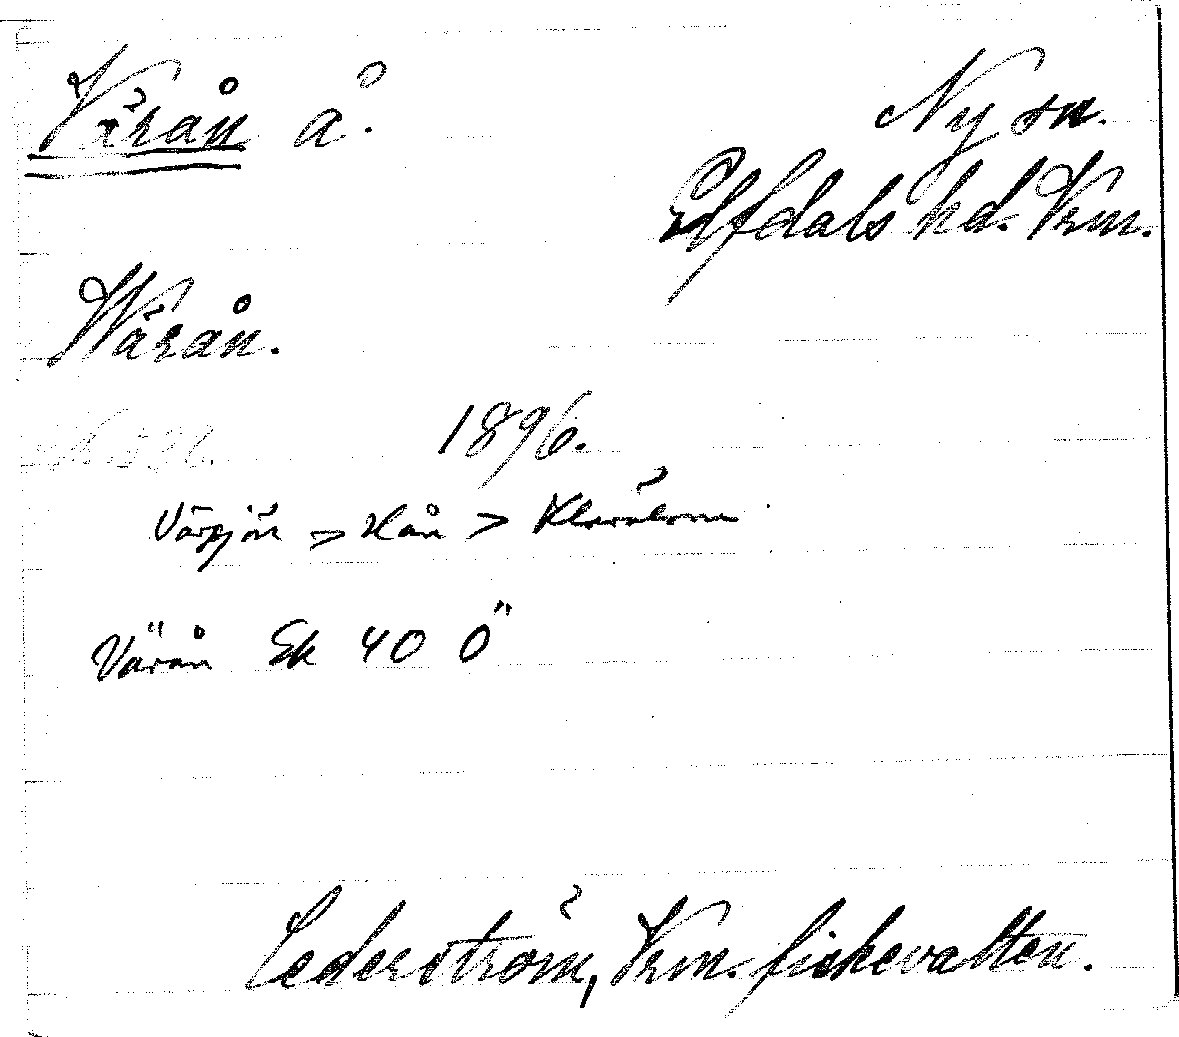 Värån å.
Ny sn.
Elfdals hd. Vrm.
Wärån.
1896.
Värsjön > Hån > Klarälven
Värån Ek 40 Ö
Cederström, Vrm. fiskevatten.